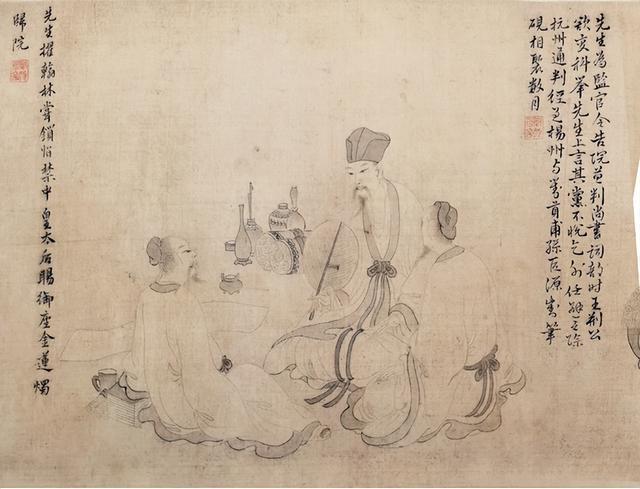 先生為監官令告院並判尚書祠部時王荊公
欲变科舉先生上言其黨不悅乞外任避之除
杭州通判經过揚州与劉貢甫孫巨源劉筆
硯相聚数月
先生擢翰林嘗鎖宿禁中皇太后賜御座金蓮燭
歸院